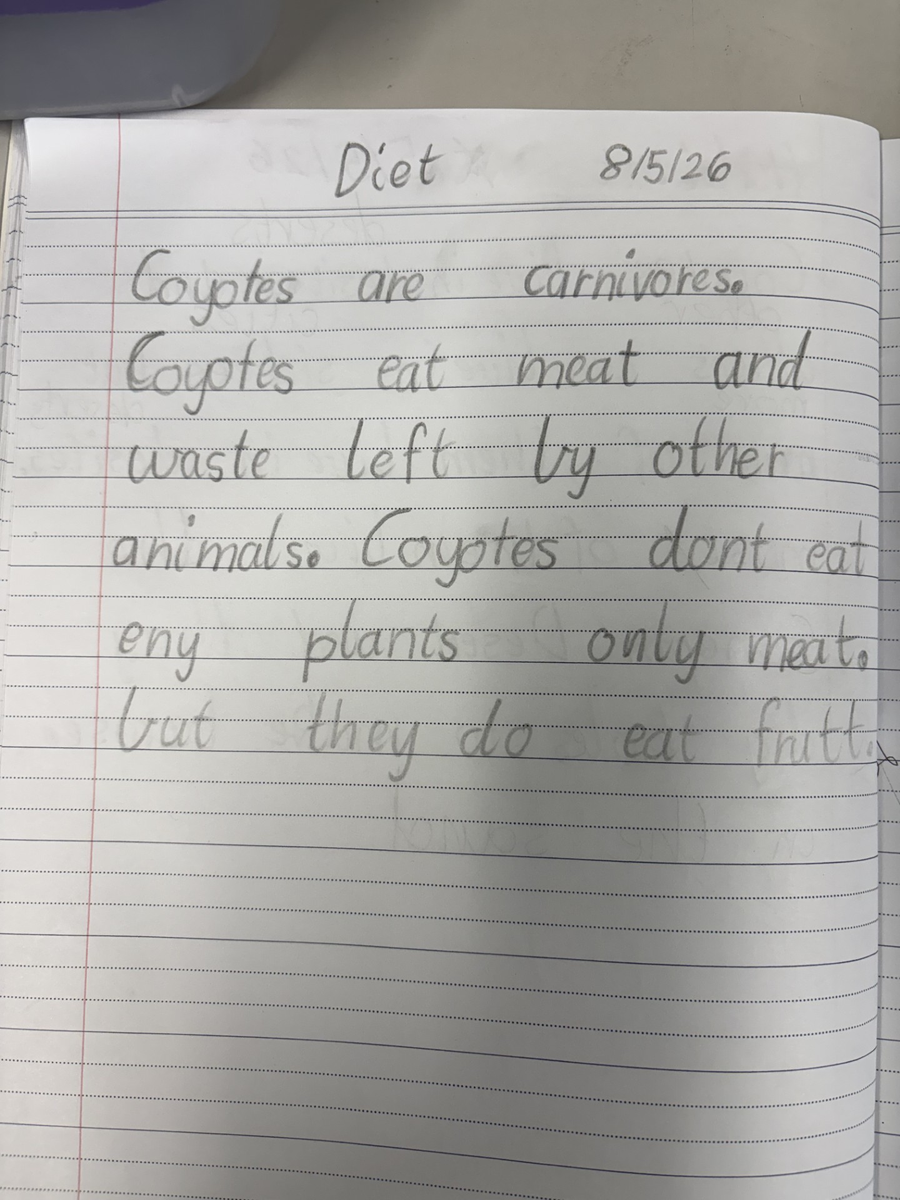 Diet 8/5/26
Coyotes are carnivores.
Coyotes eat meat and
waste left by other
animals. Coyotes dont eat
eny plants only meat.
but they do eat frutt.